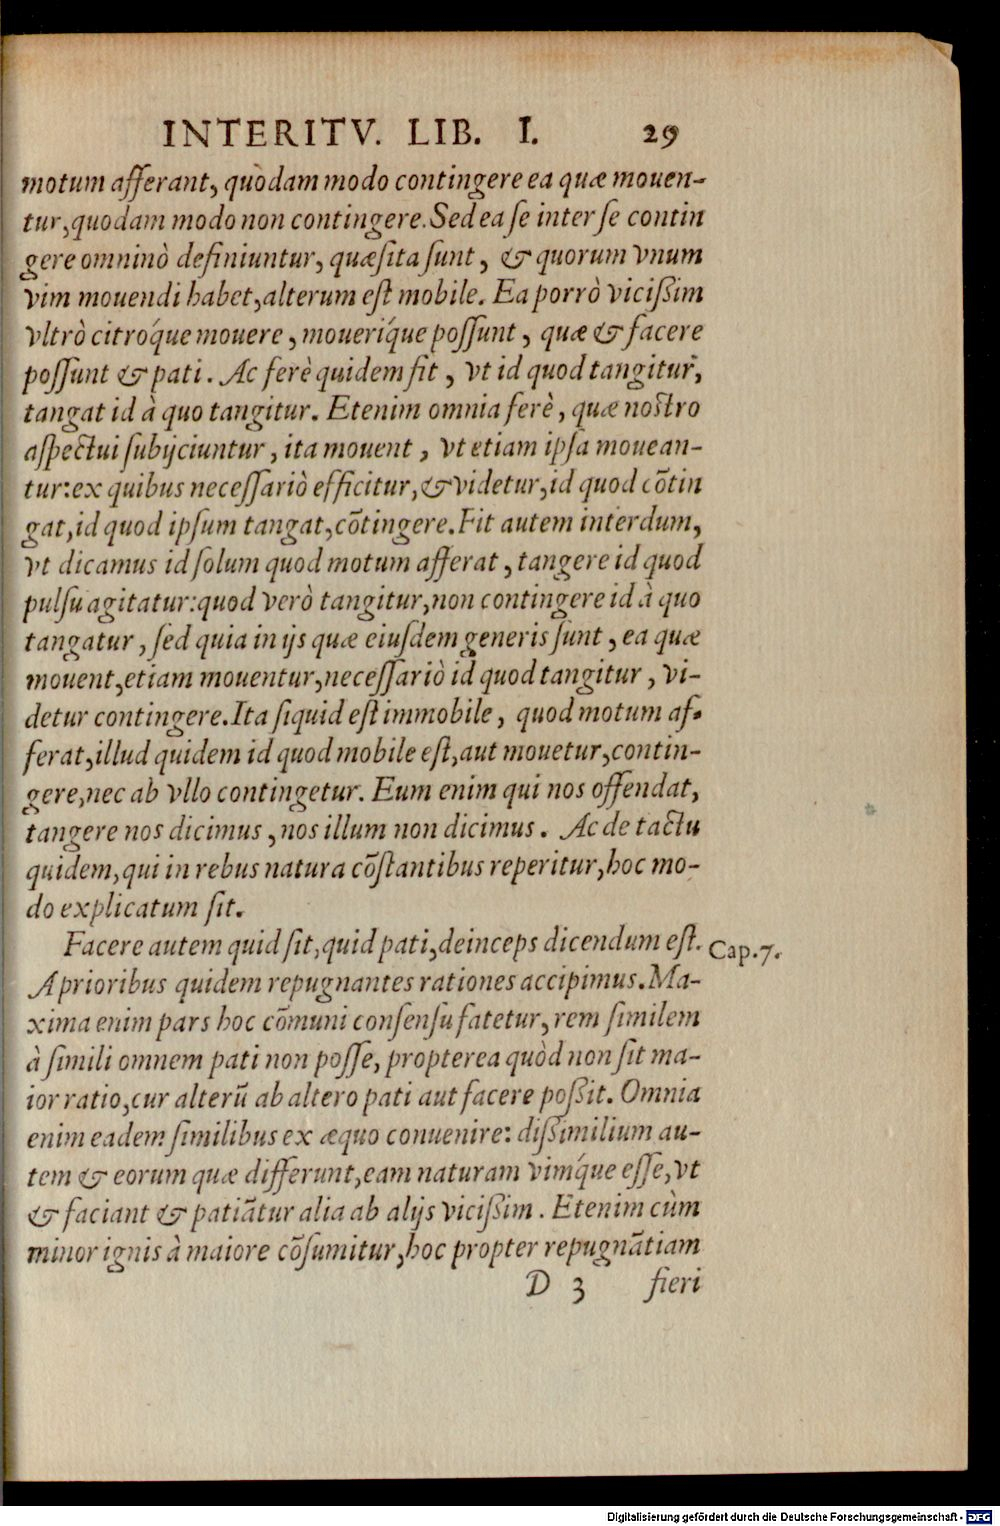 INTERITV. LIB. I. 29
motum afferant, quòdam modo contingere ea quæ mouen-
tur, quodam modo non contingere. Sed ea se inter se contin
gere omninò definiuntur, quæsita sunt, & quorum vnum
vim mouendi habet, alterum est mobile. Ea porrò vicißim
vltrò citróque mouere, mouerique possunt, quæ & facere
possunt & pati. Ac ferè quidem fit, vt id quod tangitur,
tangat id à quo tangitur. Etenim omnia ferè, quæ nostro
aspectui subijciuntur, ita mouent, vt etiam ipsa mouean-
tur: ex quibus necessariò efficitur, & videtur, id quod cōtin
gat, id quod ipsum tangat, cōtingere. Fit autem interdum,
vt dicamus id solum quod motum afferat, tangere id quod
pulsu agitatur: quod verò tangitur, non contingere id à quo
tangatur, sed quia in ijs quæ eiusdem generis sunt, ea quæ
mouent, etiam mouentur, necessariò id quod tangitur, vi-
detur contingere. Ita siquid est immobile, quod motum af-
ferat, illud quidem id quod mobile est, aut mouetur, contin-
gere, nec ab vllo contingetur. Eum enim qui nos offendat,
tangere nos dicimus, nos illum non dicimus. Ac de tactu
quidem, qui in rebus natura cōstantibus reperitur, hoc mo-
do explicatum sit.
Facere autem quid sit, quid pati, deinceps dicendum est. Cap. 7.
A prioribus quidem repugnantes rationes accipimus. Ma-
xima enim pars hoc cōmuni consensu fatetur, rem similem
à simili omnem pati non posse, propterea quòd non sit ma-
ior ratio, cur alterū ab altero pati aut facere poßit. Omnia
enim eadem similibus ex æquo conuenire: dißimilium au-
tem & eorum quæ differunt, eam naturam vimq́ue esse, vt
& faciant & patiātur alia ab alijs vicißim. Etenim cùm
minor ignis à maiore cōsumitur, hoc propter repugnātiam
D 3 fieri
Digitalisierung gefördert durch die Deutsche Forschungsgemeinschaft - DFG